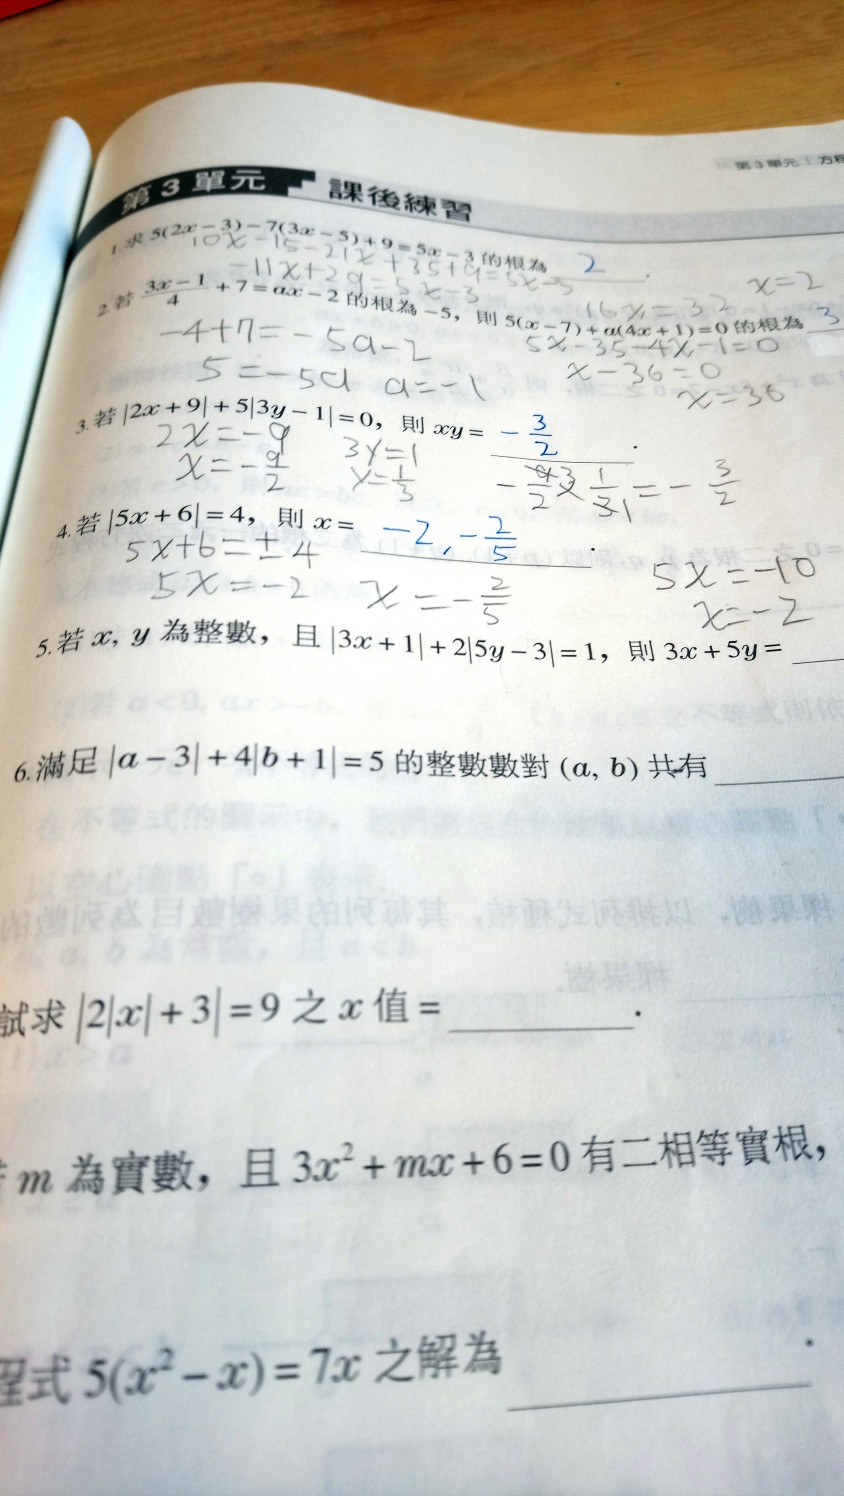 第3單元｜方程
第3單元 課後練習
1.求 5(2x−3)−7(3x−5)+9=5x−3 的根為 2 .
10x−15−21x+35+9=5x−3
−11x+29=5x−3
16x=32
x=2
2.若 (3x−1)/4 +7=ax−2 的根為 −5，則 5(x−7)+a(4x+1)=0 的根為 3
−4+7=−5a−2
5=−5a a=−1
5x−35−4x−1=0
x−36=0
x=36
3.若 |2x+9|+5|3y−1|=0，則 xy= −3/2 .
2x=−9
x=−9/2
3y=1
y=1/3
=−3/2
4.若 |5x+6|=4，則 x= −2,−2/5 .
5x+6=±4
5x=−2 x=−2/5
5x=−10
x=−2
5.若 x, y 為整數，且 |3x+1|+2|5y−3|=1，則 3x+5y=
6.滿足 |a−3|+4|b+1|=5 的整數數對 (a, b) 共有
試求 |2|x|+3|=9 之 x 值= .
m 為實數，且 3x²+mx+6=0 有二相等實根，
程式 5(x²−x)=7x 之解為 .